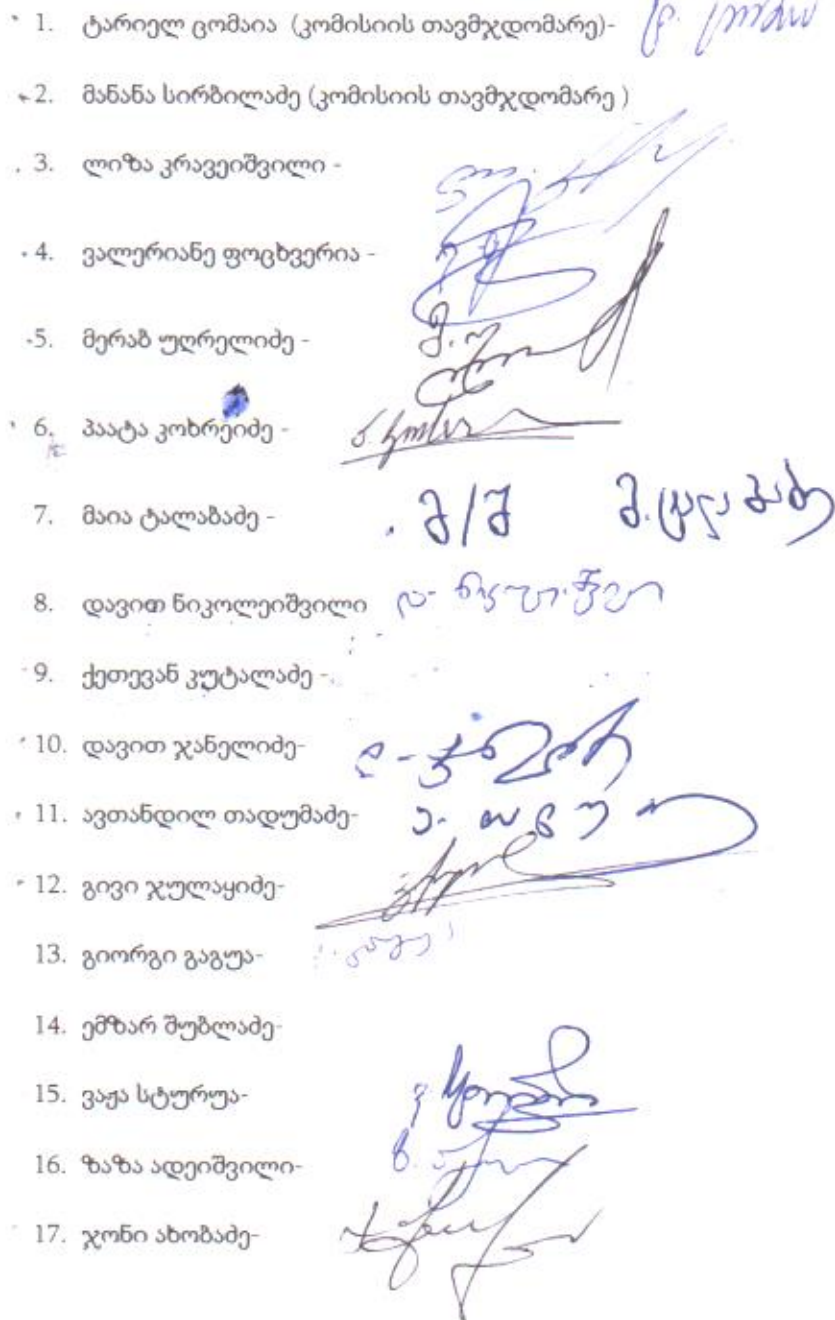 1. ტარიელ ცომაია (კომისიის თავმჯდომარე)-
2. მანანა სირბილაძე (კომისიის თავმჯდომარე )
3. ლიზა კრავეიშვილი -
4. ვალერიანე ფოცხვერია -
5. მერაბ უღრელიძე - მ. უ
6. პაატა კოხრეიძე -
7. მაია ტალაბაძე - მ/შ მ. ტალაბაძე
8. დავით ნიკოლეიშვილი
9. ქეთევან კუტალაძე -
10. დავით ჯანელიძე-
11. ავთანდილ თადუმაძე-
12. გივი ჯულაყიძე-
13. გიორგი გაგუა-
14. ემზარ შუბლაძე-
15. ვაჟა სტურუა-
16. ზაზა ადეიშვილი-
17. ჯონი ახობაძე-